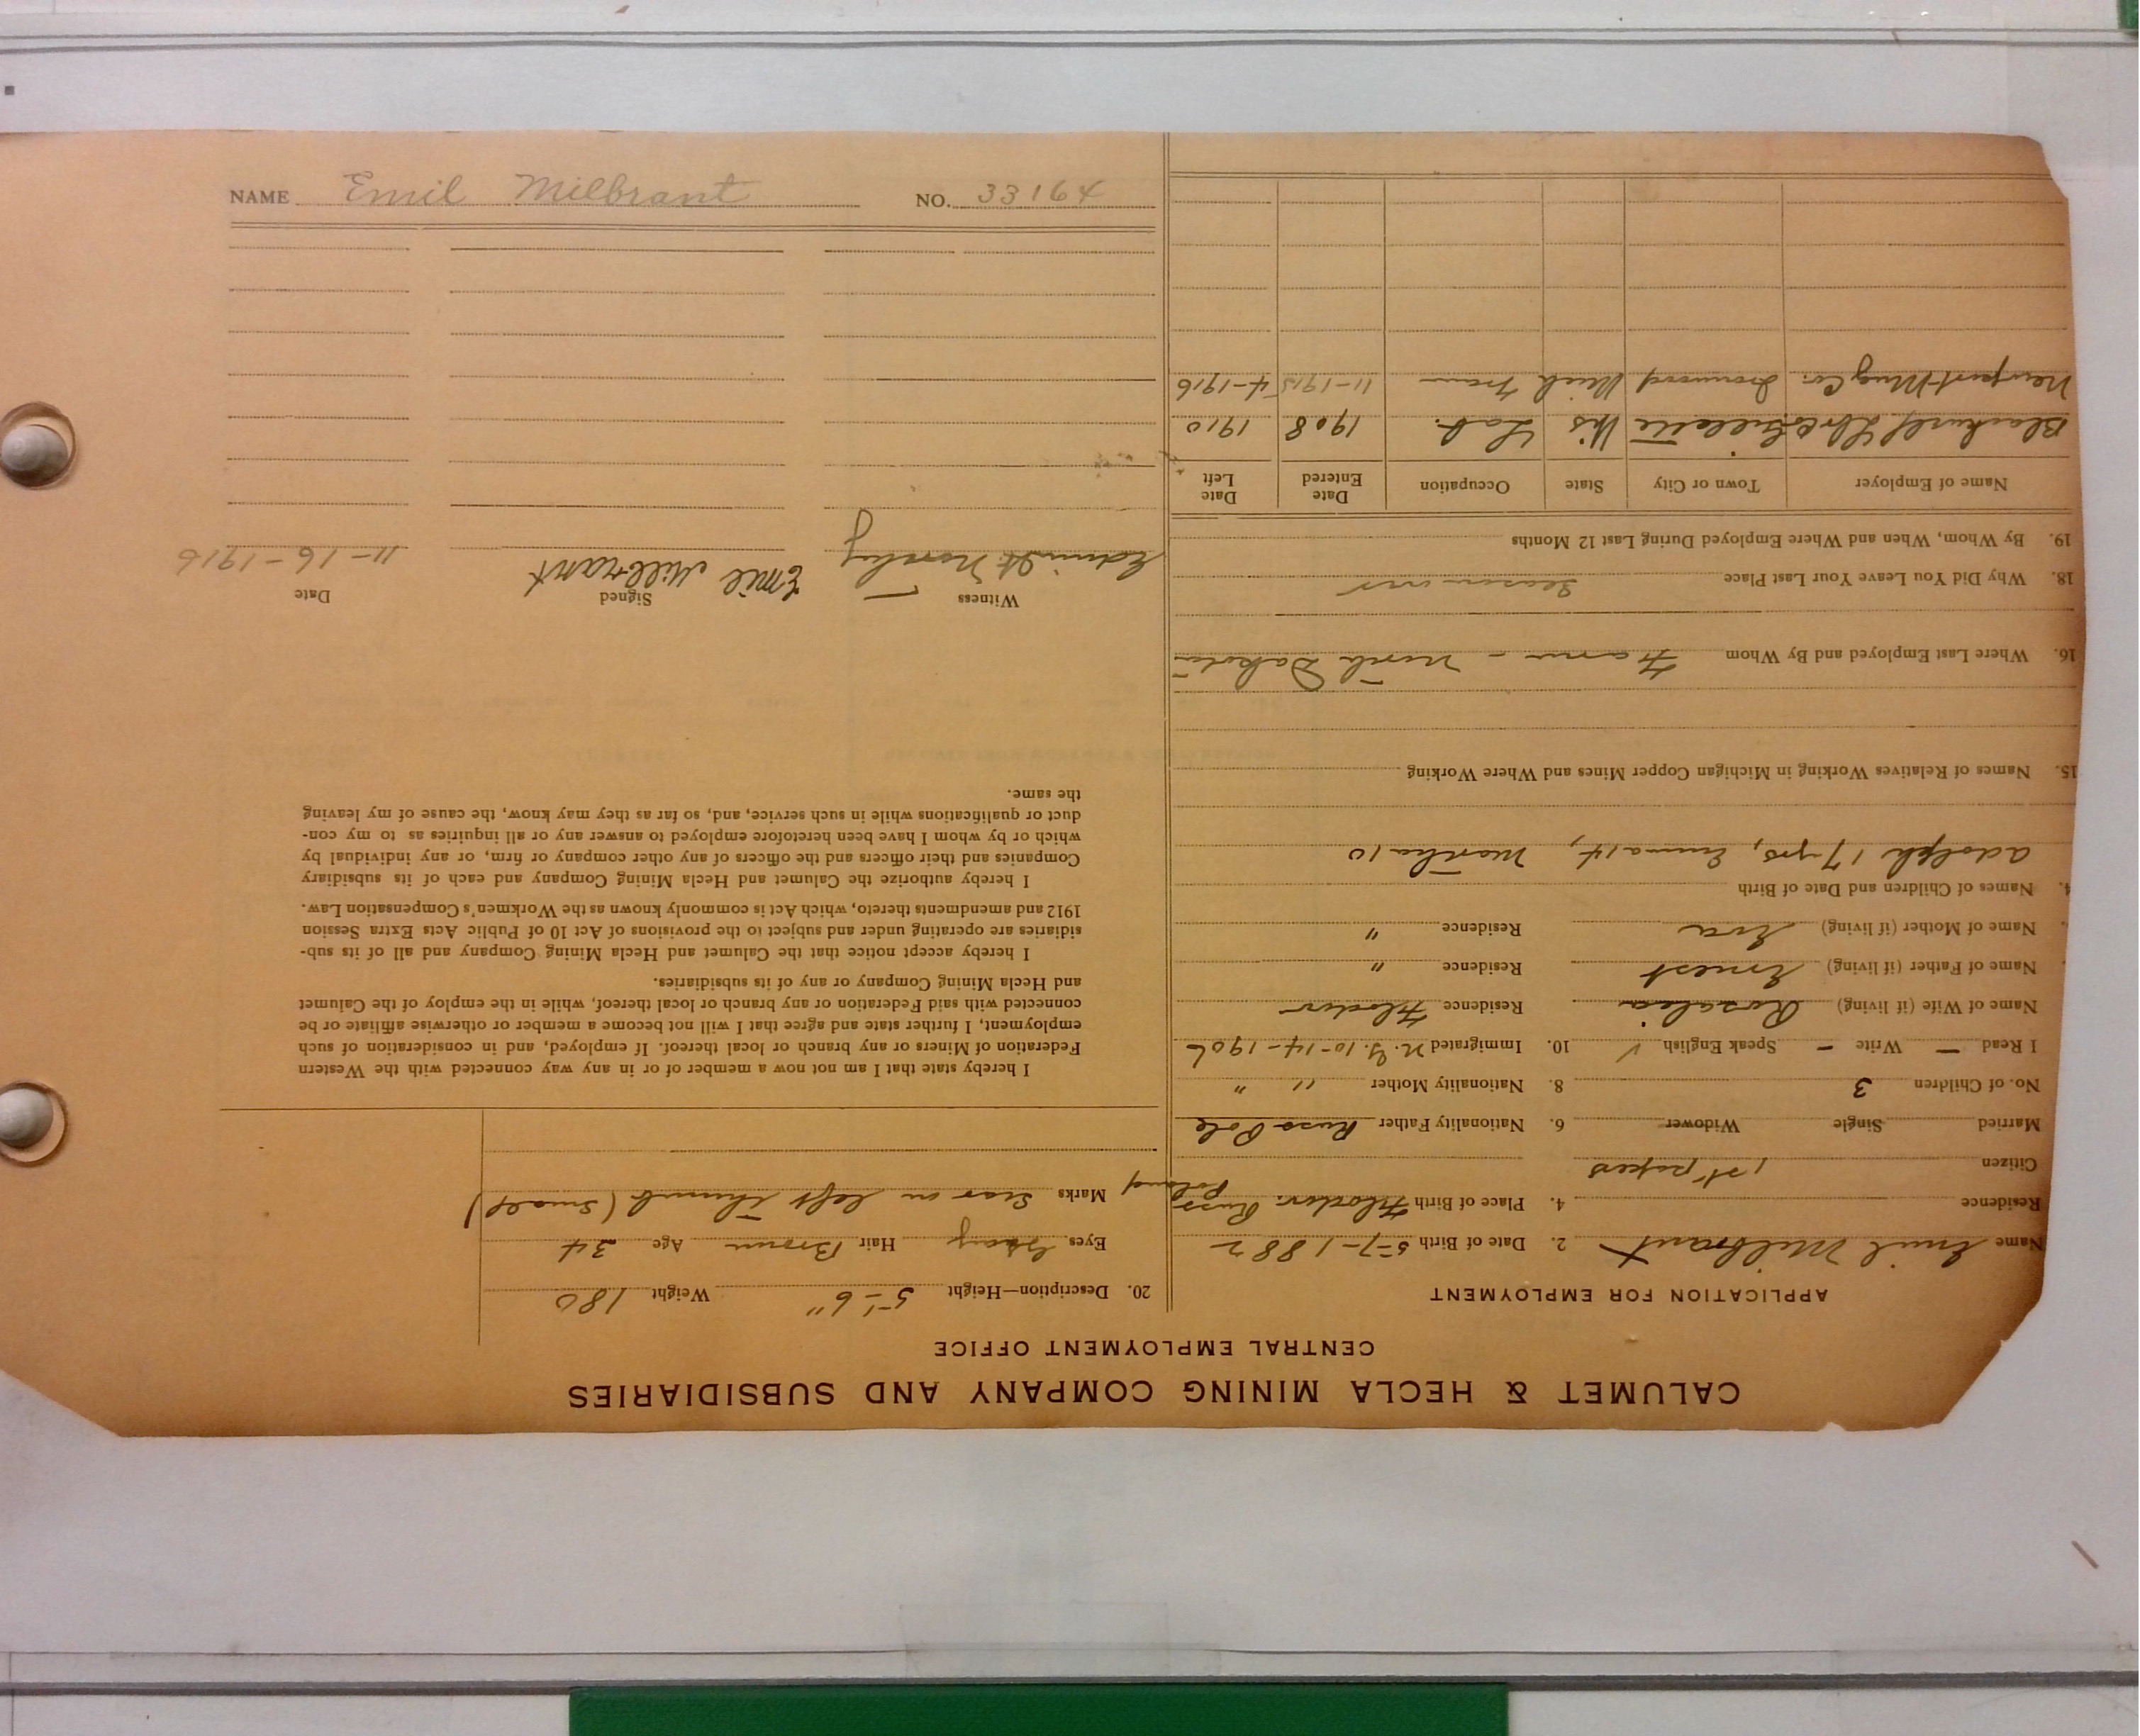 CALUMET & HECLA MINING COMPANY AND SUBSIDIARIES
CENTRAL EMPLOYMENT OFFICE
APPLICATION FOR EMPLOYMENT
Name Emil Milbrant 2. Date of Birth 5-7-1882
Residence 4. Place of Birth Russ Poland
Citizen 1st papers
Married Single Widower 6. Nationality Father Russ Pole
No. of Children 3 8. Nationality Mother " "
I Read – Write – Speak English ✓ 10. Immigrated N.Y. 10-14-1906
Name of Wife (if living) Rosalia Residence
Name of Father (if living) Ernest Residence "
Name of Mother (if living) Eva Residence "
4. Names of Children and Date of Birth
Adolph 17 yrs, Emma 14, Martha 10
15. Names of Relatives Working in Michigan Copper Mines and Where Working
16. Where Last Employed and By Whom Farm - North Dakota
18. Why Did You Leave Your Last Place Season over
19. By Whom, When and Where Employed During Last 12 Months
Name of Employer Town or City State Occupation Date Entered Date Left
Gillette Wis Lab. 1908 1910
Newport Mng Co. Ironwood Mich Tram 11-1915 4-1916
20. Description—Height 5'-6" Weight 180
Eyes Gray Hair Brown Age 34
Marks Scar on left thumb (small)
I hereby state that I am not now a member of or in any way connected with the Western
Federation of Miners or any branch or local thereof. If employed, and in consideration of such
employment, I further state and agree that I will not become a member or otherwise affiliate or be
connected with said Federation or any branch or local thereof, while in the employ of the Calumet
and Hecla Mining Company or any of its subsidiaries.
I hereby accept notice that the Calumet and Hecla Mining Company and all of its sub-
sidiaries are operating under and subject to the provisions of Act 10 of Public Acts Extra Session
1912 and amendments thereto, which Act is commonly known as the Workmen's Compensation Law.
I hereby authorize the Calumet and Hecla Mining Company and each of its subsidiary
Companies and their officers and the officers of any other company or firm, or any individual by
which or by whom I have been heretofore employed to answer any or all inquiries as to my con-
duct or qualifications while in such service, and, so far as they may know, the cause of my leaving
the same.
Witness Signed Date
Emil Millrant 11-16-1916
NAME Emil Milbrant NO. 33164